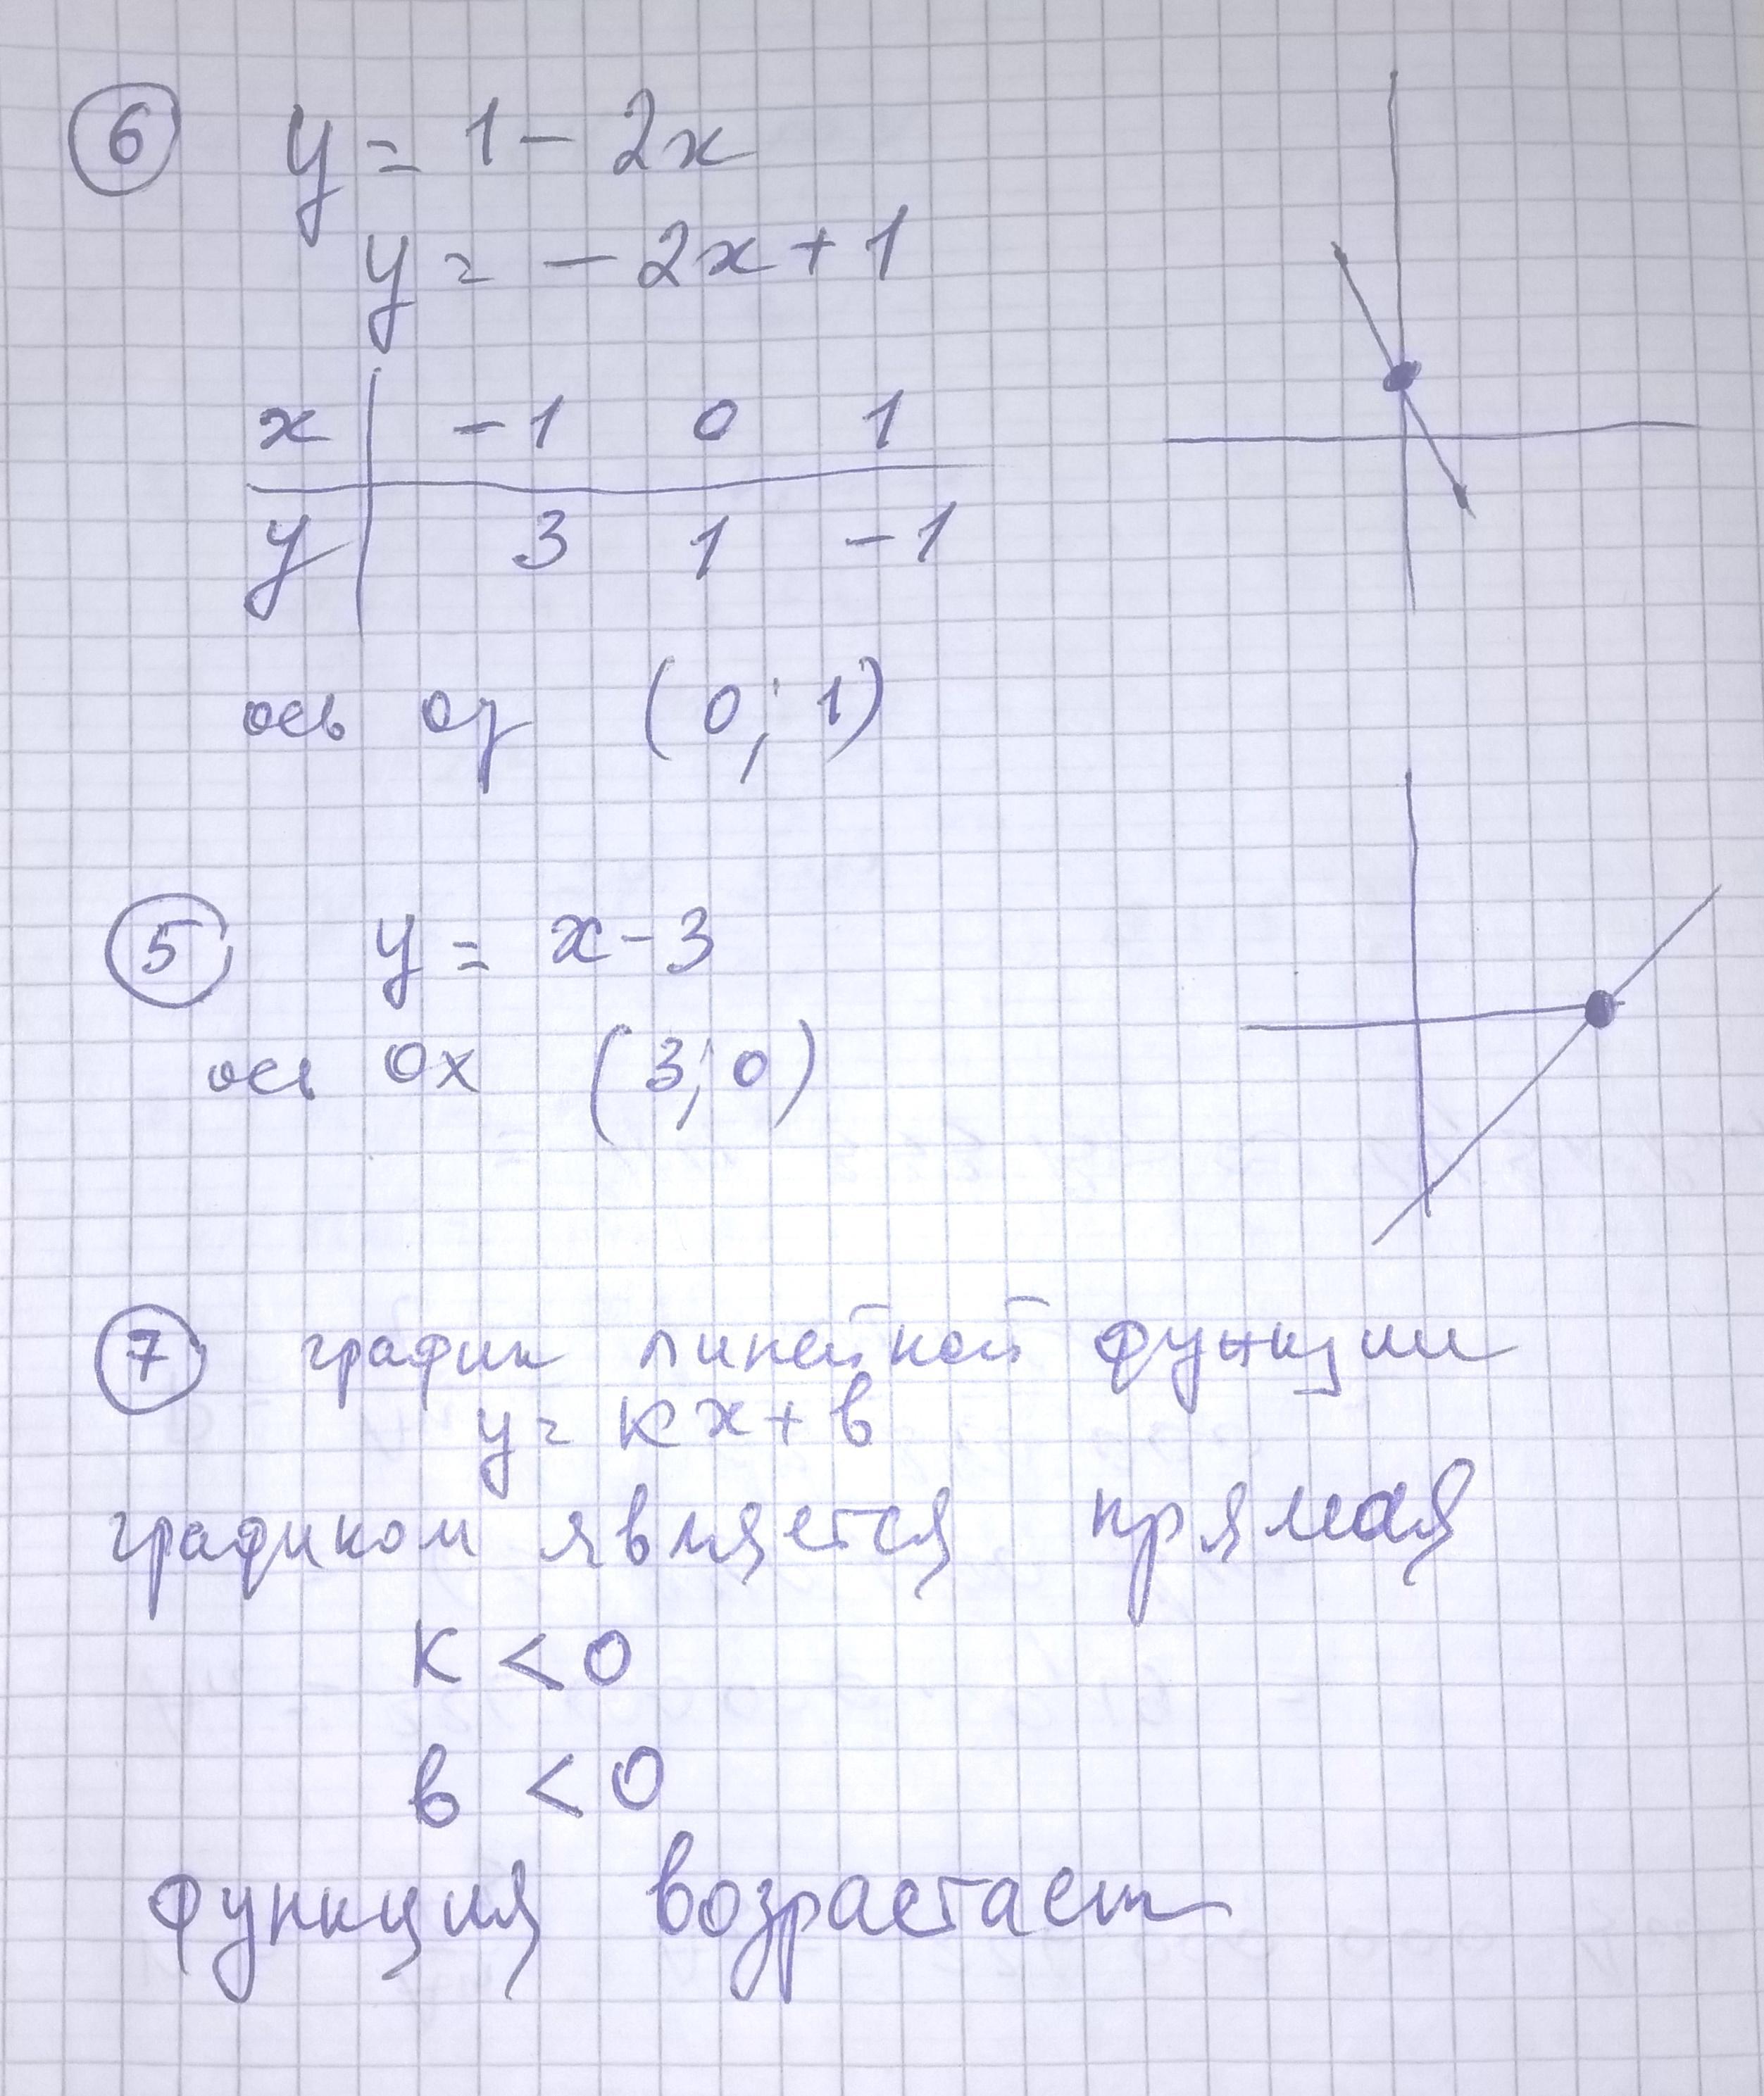 6 y = 1 - 2x
y = - 2x + 1
x | -1 0 1
y | 3 1 -1
ось oy (0; 1)
5 y = x - 3
ось ox (3; 0)
7 график линейной функции
y = kx + b
графиком является прямая
k < 0
b < 0
функция возрастает